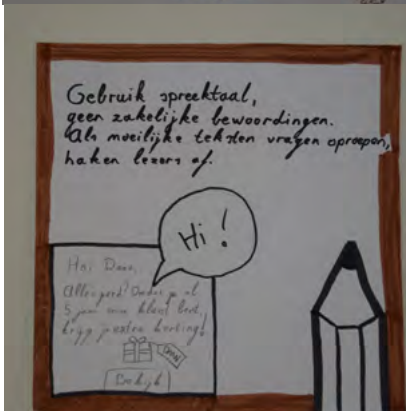 Gebruik spreektaal,
geen zakelijke bewoordingen.
Als moeilijke teksten vragen oproepen,
haken lezers af.
Hi!
Hoi Daan,
Alles goed? Omdat je al
5 jaar
klant bent,
krijg je extra korting!
Bekijk